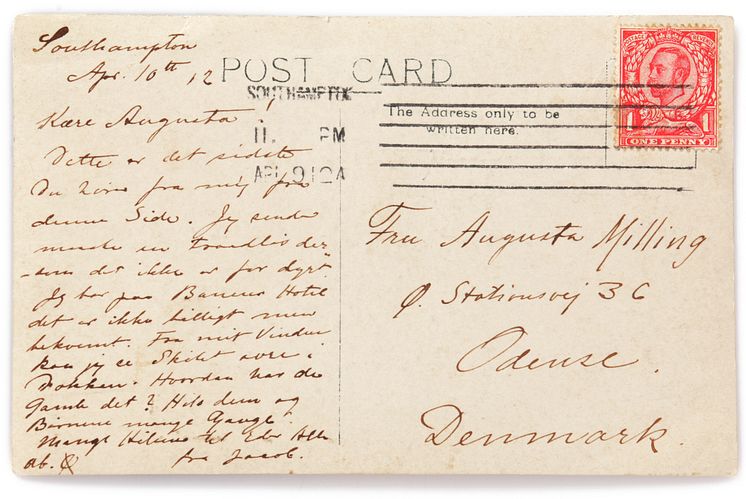 Southampton
Apr. 10th 12
POST CARD
SOUTHAMPTON
11. PM
AP. 9 12A
The Address only to be
written here.
POSTAGE REVENUE
1 1
ONE PENNY
Kære Augusta!
Dette er det sidste
Du hører fra mig fra
denne Side. Jeg sender
maaske en Traadløs der-
som det ikke er for dyrt
Jeg bor paa Hotel
det er ikke billigt men
bekvemt. Fra mit Vindue
kan jeg se Skibet i
Dokken. Hvordan har de
Gamle det? Hils dem og
Børnene mange Gange.
Mange Hilsner til Eder Alle
fra Jacob.
Fru Augusta Milling
Ø. Stationsvej 36
Odense.
Denmark.